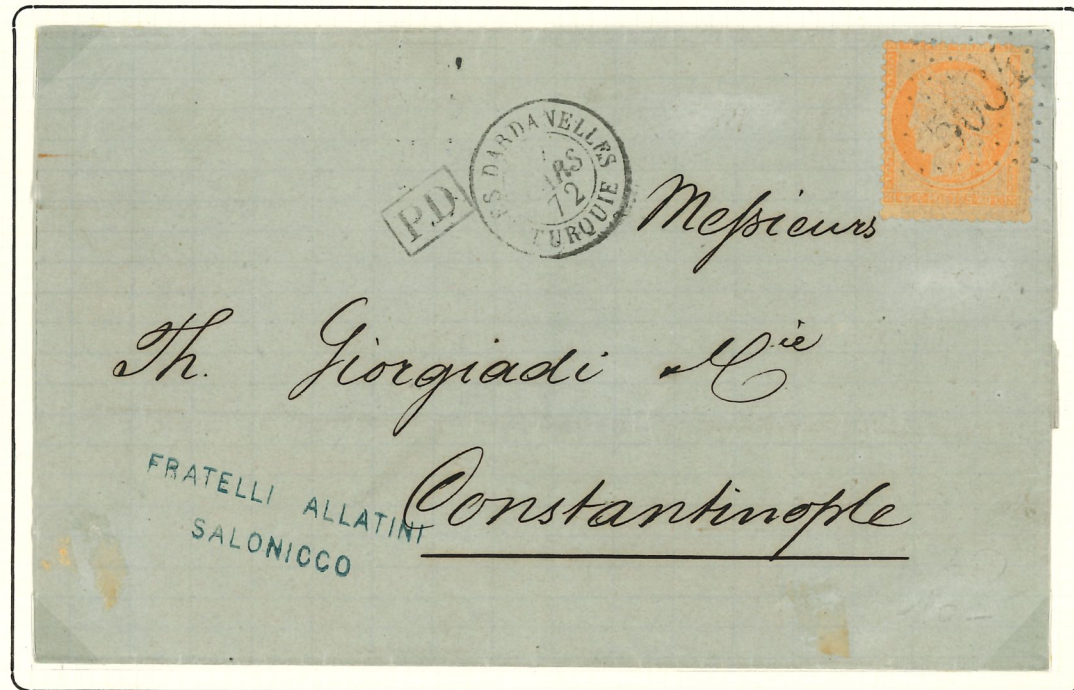 LES DARDANELLES
MARS
72
TURQUIE
P.D
Messieurs
Th. Giorgiadi & Cie
Constantinople
FRATELLI ALLATINI
SALONICCO